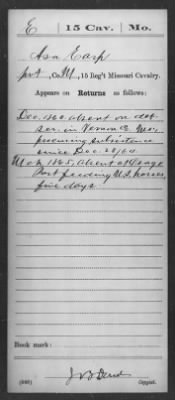 E 15 Cav. Mo.
Asa Earp
Pvt, Co. M, 15 Reg't Missouri Cavalry.
Appears on Returns as follows:
Dec. 1864 Absent on det.
ser. in Vernon Co Mo.
procuring subsistence
since Dec. 28/64.
Mch 1865, Absent at Osage
Post feeding U.S. horses,
five days.
Book mark:
(646)
Copyist.